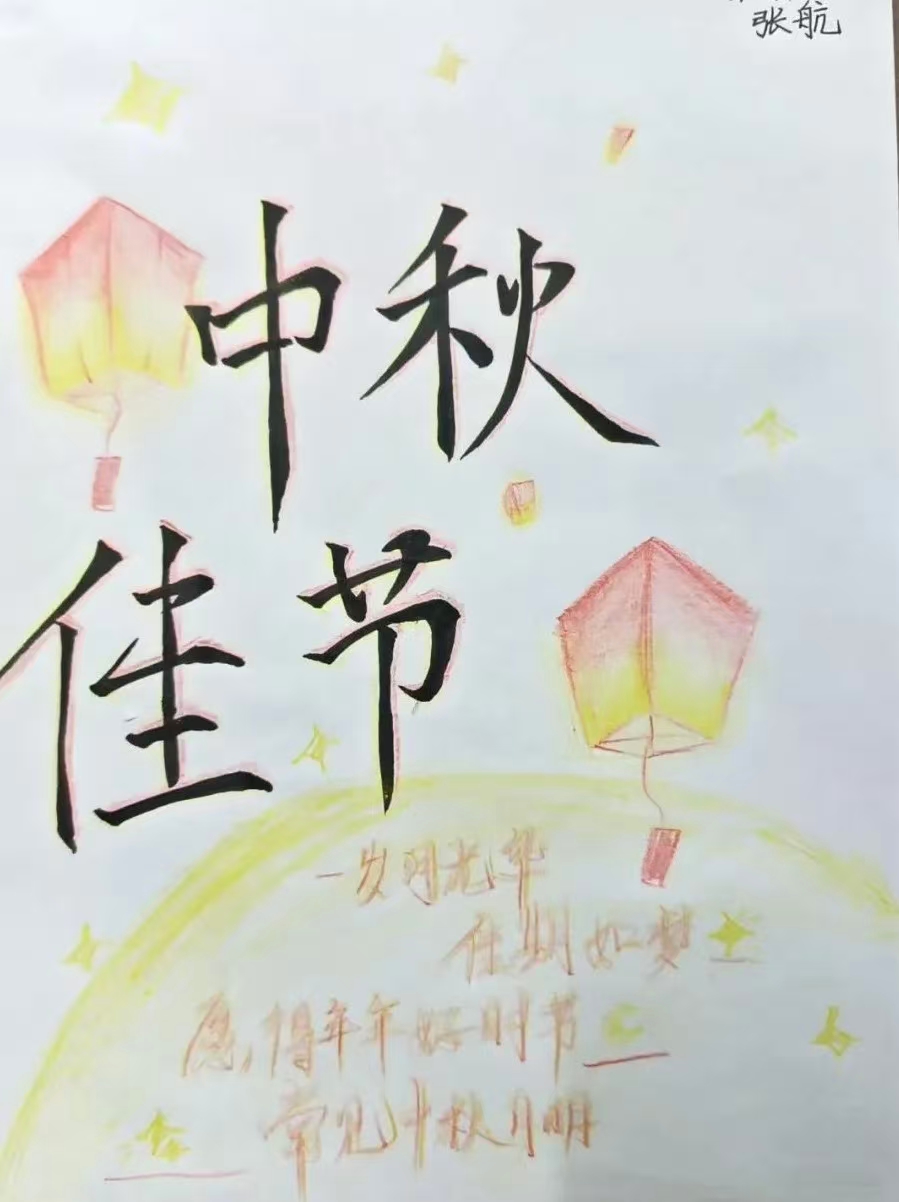 张航
中秋
佳节
一岁月光华
佳期如梦
愿,得年年好时节
常见中秋月明